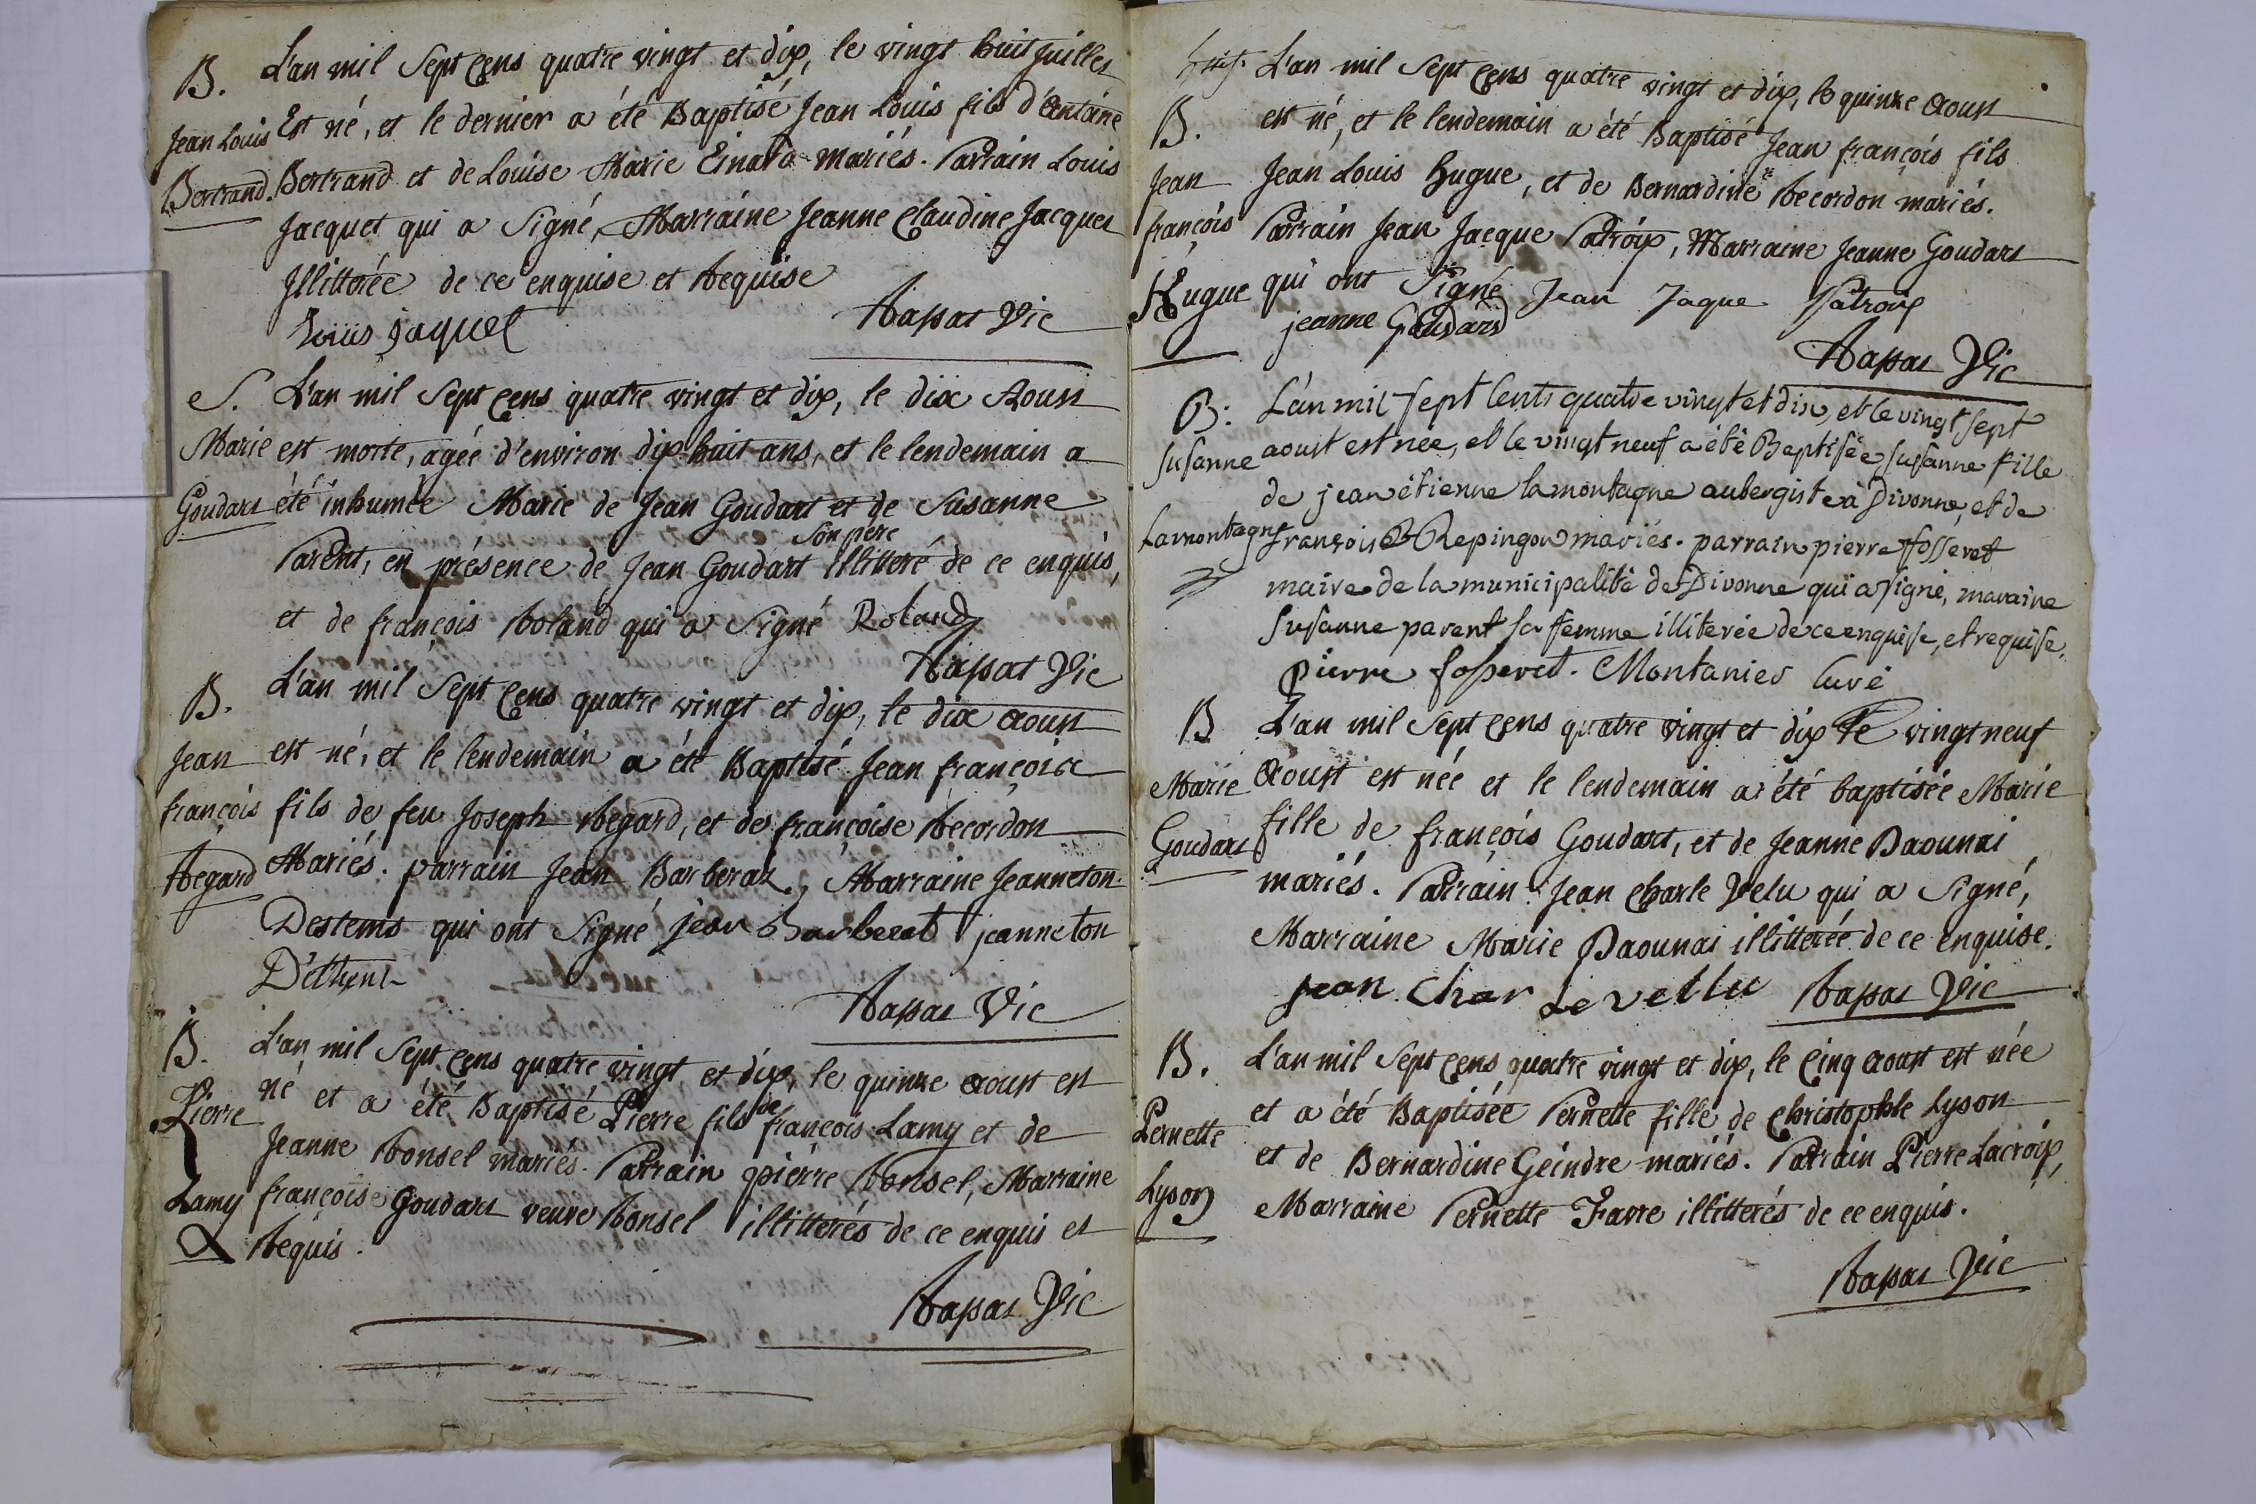 B. L'an mil Sept Cens quatre vingt et dix, le vingt huit Juillet
Jean Louis Est né, et le dernier a été Baptisé Jean Louis fils d'Antoine
Bertrand. Bertrand et de Louise Marie Emara mariés. Parrain Louis
Jacquet qui a Signé, Marraine Jeanne Claudine Jacquet
Illittérée de ce enquise et Requise
Louis jaquet Rapat Vic
S. L'an mil Sept Cens quatre vingt et dix, le dix Aoust
Marie est morte, agée d'environ dix huit ans, et le lendemain a
Goudart été inhumée Marie de Jean Goudart et de Susanne
son père
Parent, en présence de Jean Goudart illitteré de ce enquis,
et de françois Roland qui a Signé Roland
Rapat Vic
B. L'an mil Sept Cens quatre vingt et dix, le dix aoust
Jean est né, et le lendemain a été Baptisé Jean françois
françois fils de feu Joseph Regard, et de françoise Recordon
Regard Mariés. parrain Jean Barberat, Marraine Jeanneton
Destems qui ont Signé jean Barberat jeanneton
Rapat Vic
B. L'an mil Sept Cens quatre vingt et dix, le quinze aoust est
Pierre né et a été Baptisé Pierre fils de françois Lamy et de
Jeanne Ronsel mariés. Parrain pierre Ronsel, Marraine
Lamy françoise Goudart veuve Ronsel illitterés de ce enquis et
Requis.
Rapat Vic
huit. L'an mil Sept Cens quatre vingt et dix, le quinze aoust
B. est né, et le lendemain a été Baptisé Jean françois fils
Jean Jean Louis Hugue, et de Bernardine Recordon mariés.
françois Parrain Jean Jacque Patroix, Marraine Jeanne Goudart
Hugue qui ont Signé Jean Jaque Patroix
jeanne Goudard
Rapat Vic
B: L'an mil sept cents quatre vingt et dix, et le vingt sept
susanne aoust est née, et le vingt neuf a été Baptisée susanne fille
de jean étienne lamontagne aubergiste à Divonne, et de
Lamontagne françoise Repingon mariés. parrain pierre fosseret
maire de la municipalité de Divonne qui a signé, maraine
susanne parent sa femme illiterée de ce enquise, et requise.
pierre fosseret. Montanier Curé
B L'an mil Sept Cens quatre vingt et dix le vingt neuf
Marie Aoust est née et le lendemain a été baptisée Marie
Goudart fille de françois Goudart, et de Jeanne Daounai
mariés. Parrain Jean Charle Velu qui a Signé,
Marraine Marie Daounai illitterée de ce enquise.
jean Char Le vellu Rapat Vic
B. L'an mil Sept Cens quatre vingt et dix, le Cinq aoust est née
Pernette et a été Baptisée Pernette fille de Christophle Lyson
et de Bernardine Geindre mariés. Parrain Pierre Lacroix,
Lyson Marraine Pernette Favre illitterés de ce enquis.
Rapat Vic